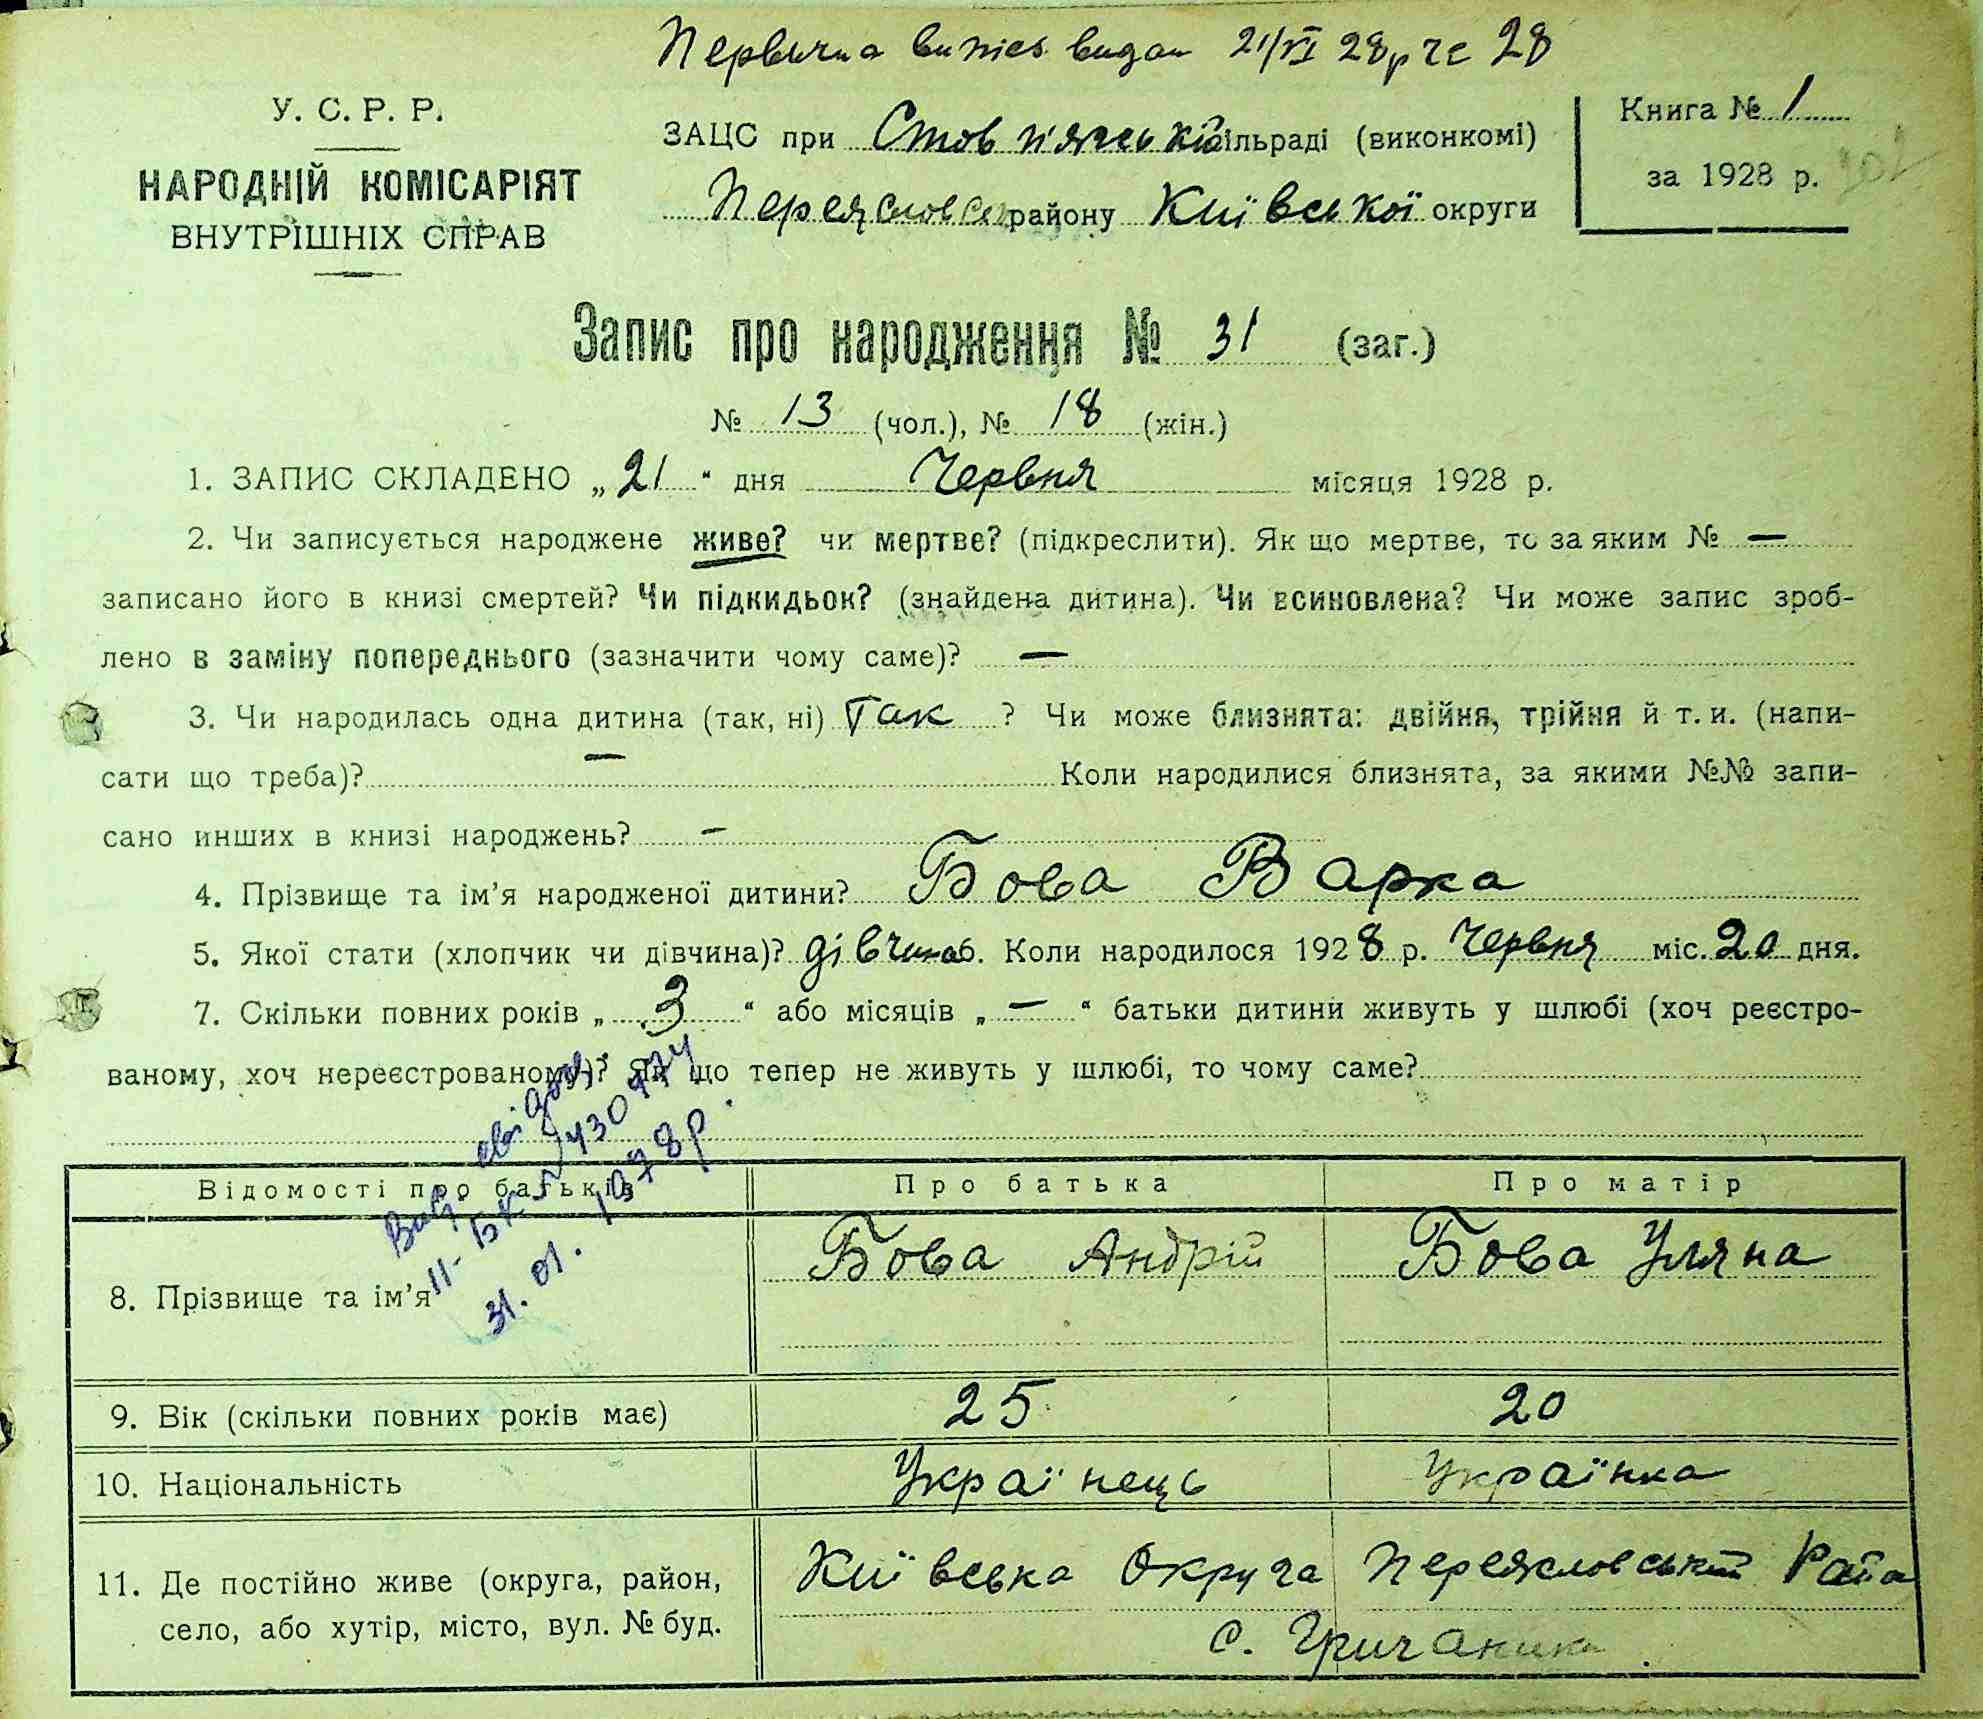 Первична випись видан 21/VI 28р че 28
У. С. Р. Р.
НАРОДНІЙ КОМІСАРІЯТ
ВНУТРІШНІХ СПРАВ
ЗАЦС при Стовп'язькій сільраді (виконкомі)
Переяслов району Київської округи
Книга № 1
за 1928 р.
Запис про народження № 31 (заг.)
№ 13 (чол.), № 18 (жін.)
1. ЗАПИС СКЛАДЕНО „21“ дня Червня місяця 1928 р.
2. Чи записується народжене живе? чи мертве? (підкреслити). Як що мертве, то за яким № —
записано його в книзі смертей? Чи підкидьок? (знайдена дитина). Чи всиновлена? Чи може запис зроб-
лено в заміну попереднього (зазначити чому саме)? —
3. Чи народилась одна дитина (так, ні) Так ? Чи може близнята: двійня, трійня й т. и. (напи-
сати що треба)? — Коли народилися близнята, за якими №№ запи-
сано инших в книзі народжень? —
4. Прізвище та ім'я народженої дитини? Бова Варка
5. Якої стати (хлопчик чи дівчина)? дівчина 6. Коли народилося 1928 р. Червня міс. 20 дня.
7. Скільки повних років „ 3 “ або місяців „ — “ батьки дитини живуть у шлюбі (хоч реєстро-
ваному, хоч нереєстрованому)? Як що тепер не живуть у шлюбі, то чому саме?
31. 01. 1978р.
Відомості про батьків Про батька Про матір
8. Прізвище та ім'я Бова Андрій Бова Уляна
9. Вік (скільки повних років має) 25 20
10. Національність Українець Українка
11. Де постійно живе (округа, район, Київська Округа Переяславський Райо
село, або хутір, місто, вул. № буд. с. Гричаники